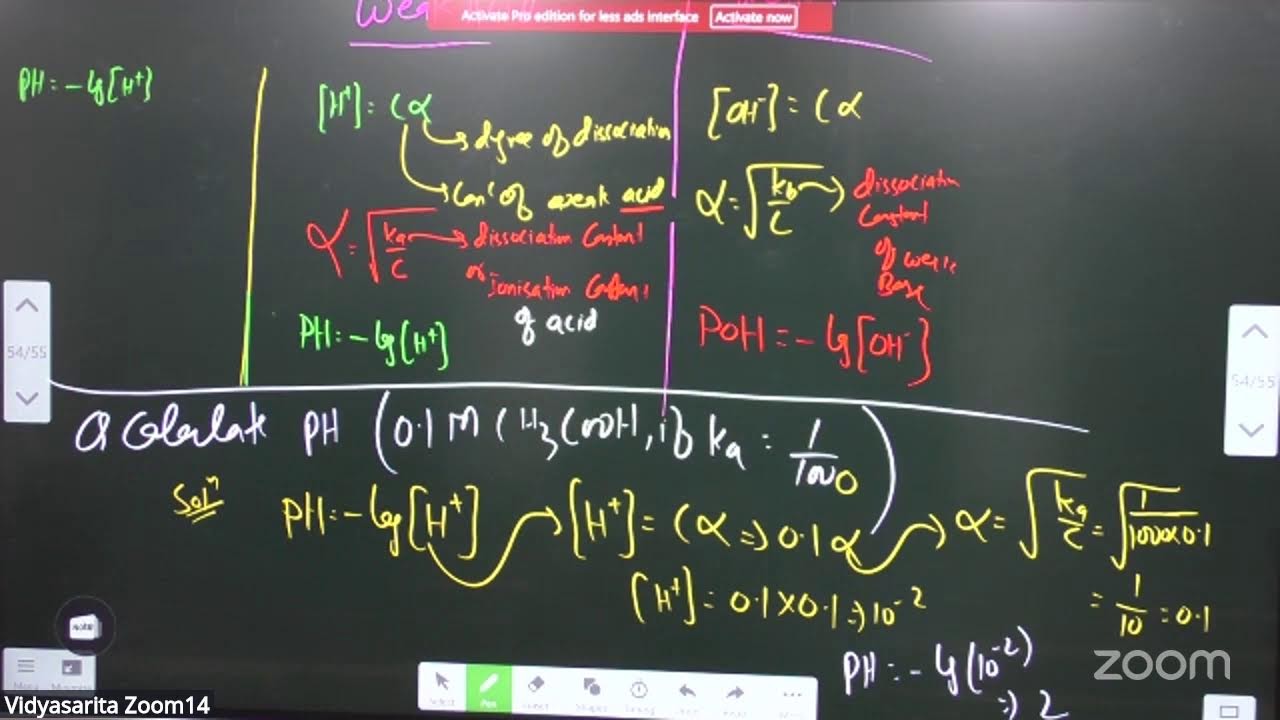 Weak
Activate Pro edition for less ads interface Activate now
PH = -lg[H+]
[H+] = Cα
degree of dissociation
Conc of weak acid
α = √(ka/C) dissociation Constant
or
Ionisation Constant
of acid
PH = -lg[H+]
[OH-] = Cα
α = √(kb/C) dissociation
Constant
of weak
Base
POH = -lg[OH-]
54/55
54/55
Q Calculate PH (0.1 M CH3COOH, if ka = 1/1000)
Soln PH = -log[H+] [H+] = Cα => 0.1α α = √(ka/C) = √(1/1000×0.1)
[H+] = 0.1×0.1 => 10-2 = 1/10 = 0.1
PH = -lg(10-2)
=> 2
note
zoom
Menu Minimize
Select Pen Eraser Shapes Undo Redo
Vidyasarita Zoom14